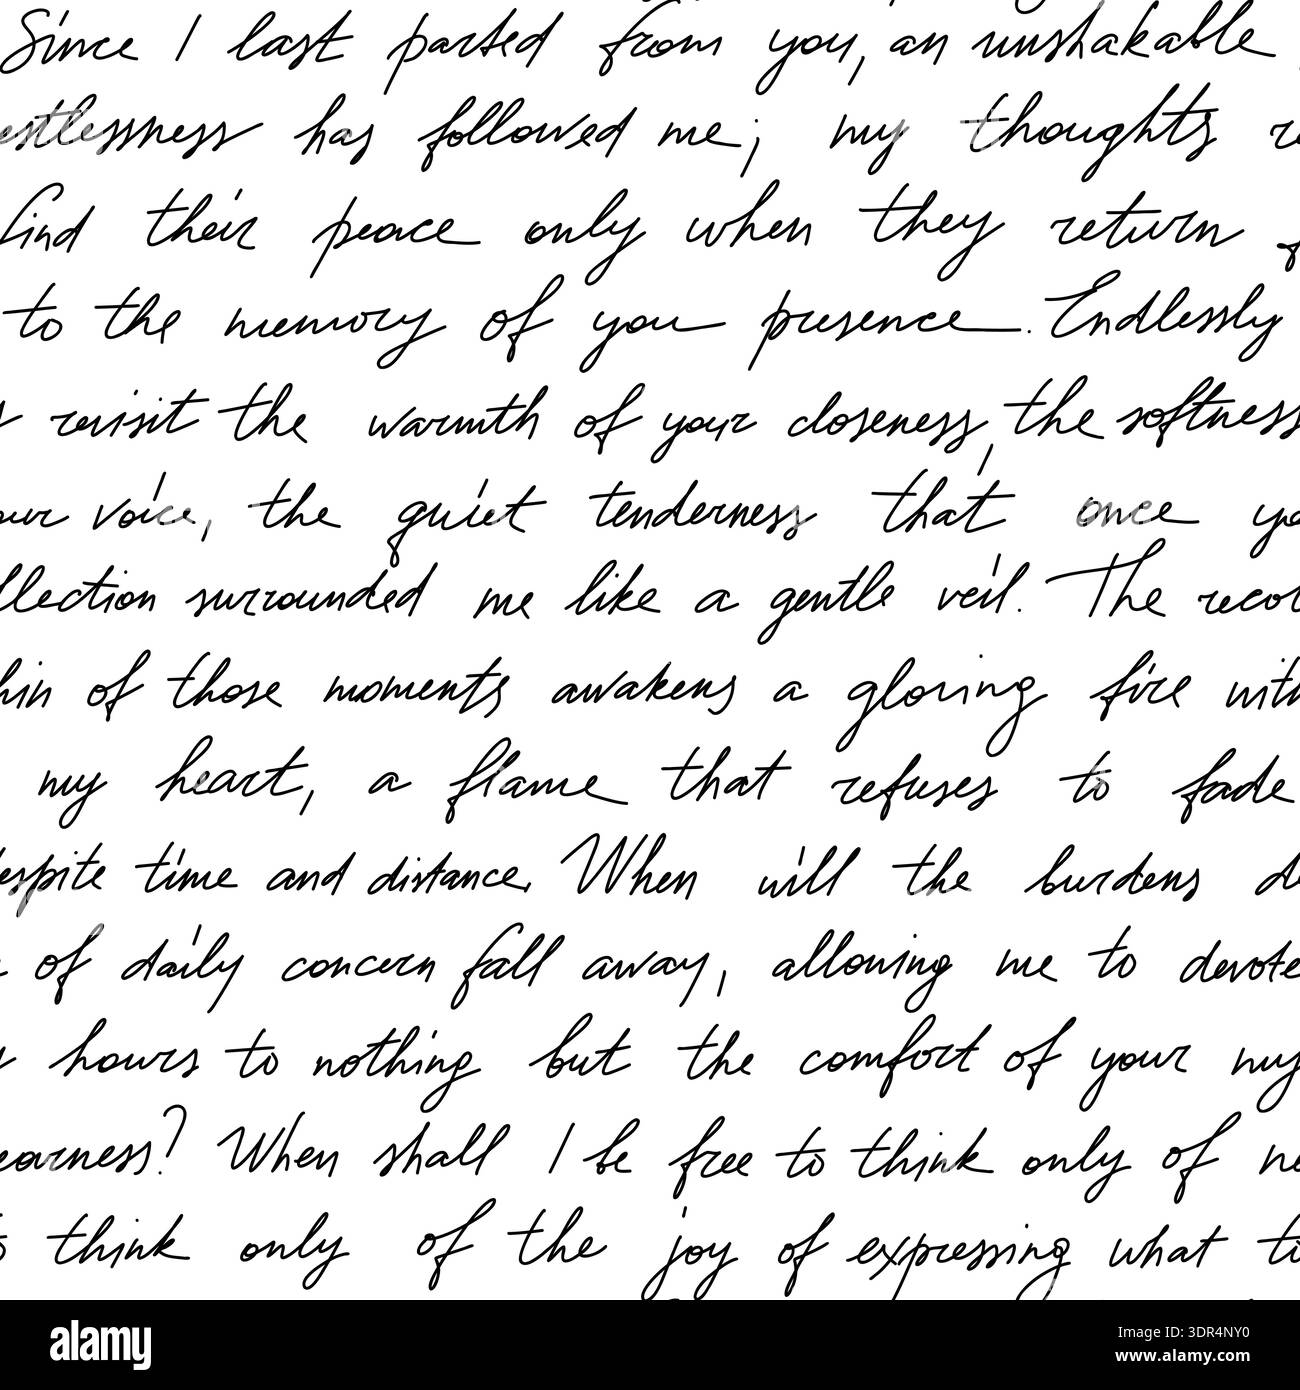 Since I last parted from you, an unshakable
estlessness has followed me; my thoughts r
find their peace only when they return
to the memory of you presence. Endlessly
revisit the warmth of your closeness, the softness
our voice, the quiet tenderness that once yo
llection surrounded me like a gentle veil. The recol
hin of those moments awakens a gloring fire with
my heart, a flame that refuses to fade
despite time and distance. When will the burdens d
of daily concern fall away, alloning me to devote
hours to nothing but the comfort of your my
earness? When shall I be free to think only of ne
to think only of the joy of expressing what ti
alamy
Image ID: 3DR4NY0
www.alamy.com